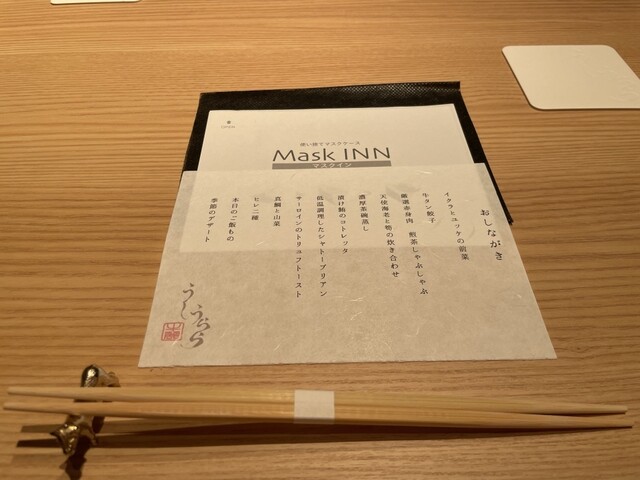 使い捨てマスクケース
Mask INN
マスクイン
おしながき
イクラとユッケの前菜
牛タン餃子
厳選赤身肉 煎茶しゃぶしゃぶ
天使海老と筍の炊き合わせ
濃厚茶碗蒸し
漬け鮪のコトレッタ
低温調理したシャトーブリアン
サーロインのトリュフトースト
真鯛と山菜
ヒレ二種
本日のご飯もの
季節のデザート
うしうらら